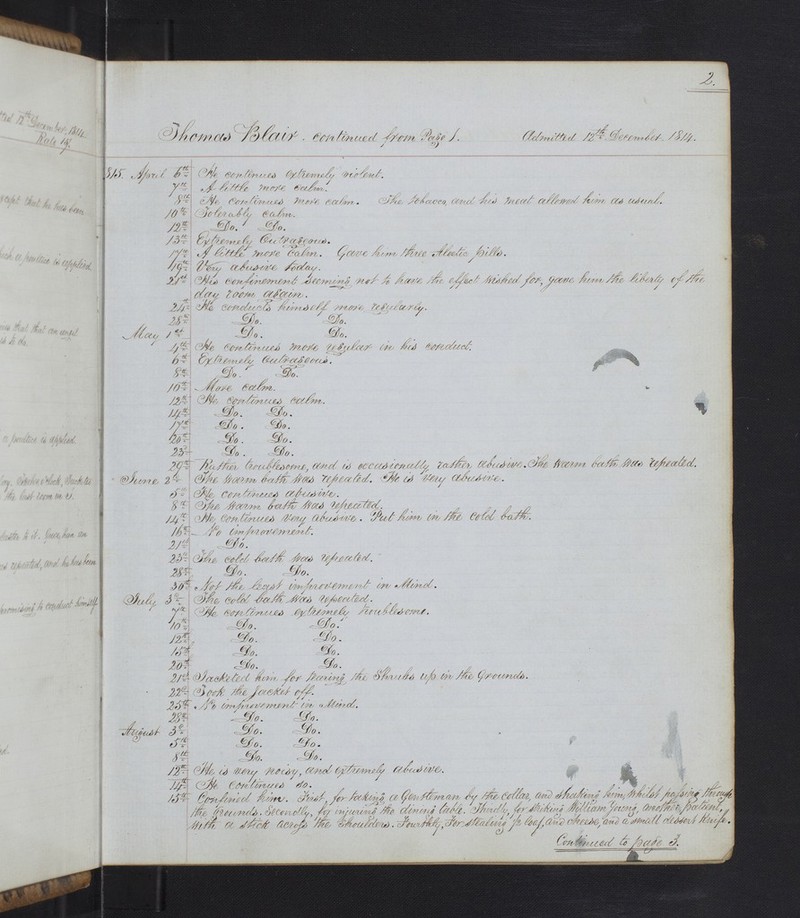 2.
Thomas Blair. continued from Page 1. Admitted 12th December. 1814.
1815. April 6th He continues extremely violent.
7th A little more calm.
8th He continues more calm. The and his meat allowed him as usual.
10th Tolerably calm.
12th Do. Do.
13th Extremely Outrageous.
17th A little more calm. Gave him three Aloetic pills.
19th Very abusive today.
21st His confinement seeming not to have the effect wished for, gave him the liberty of the
day room again.
24th He conducts himself more regularly.
28th Do. Do.
May 1st Do. Do.
4th He continues more regular in his conduct.
6th Extremely Outrageous.
8th Do. Do.
10th More calm.
12th He continues calm.
14th Do. Do.
17th Do. Do.
20th Do. Do.
23d Do. Do.
29th Rather troublesome, and is occasionally rather abusive. The warm bath was repeated.
June 2d The warm bath was repeated. He is very abusive.
5th He continues abusive.
8th The warm bath was repeated.
14th He continues very abusive. Put him in the cold bath.
16th No improvement.
21st Do.
25th The cold bath was repeated.
28th Do. Do.
30th Not the least improvement in Mind.
July 3d The cold bath was repeated.
7th He continues extremely troublesome.
10th Do. Do.
12th Do. Do.
15th Do. Do.
20th Do. Do.
21st Jacketed him for tearing the Shrubs up in the Grounds.
22d Took the Jacket off.
25th No improvement in Mind.
28th Do. Do.
August 3d Do. Do.
5th Do. Do.
8th Do. Do.
12th He is very noisy, and extremely abusive.
14th He continues so.
15th Confined him. First, for taking a Gentleman by the collar, and shaking him, whilst passing through
the grounds. Secondly, for injuring the dining table. Thirdly, for striking William Young, another Patient,
with a stick across the Shoulders. Fourthly, For stealing loaf, and cheese, and a small dessert knife.
Continued to page 3.